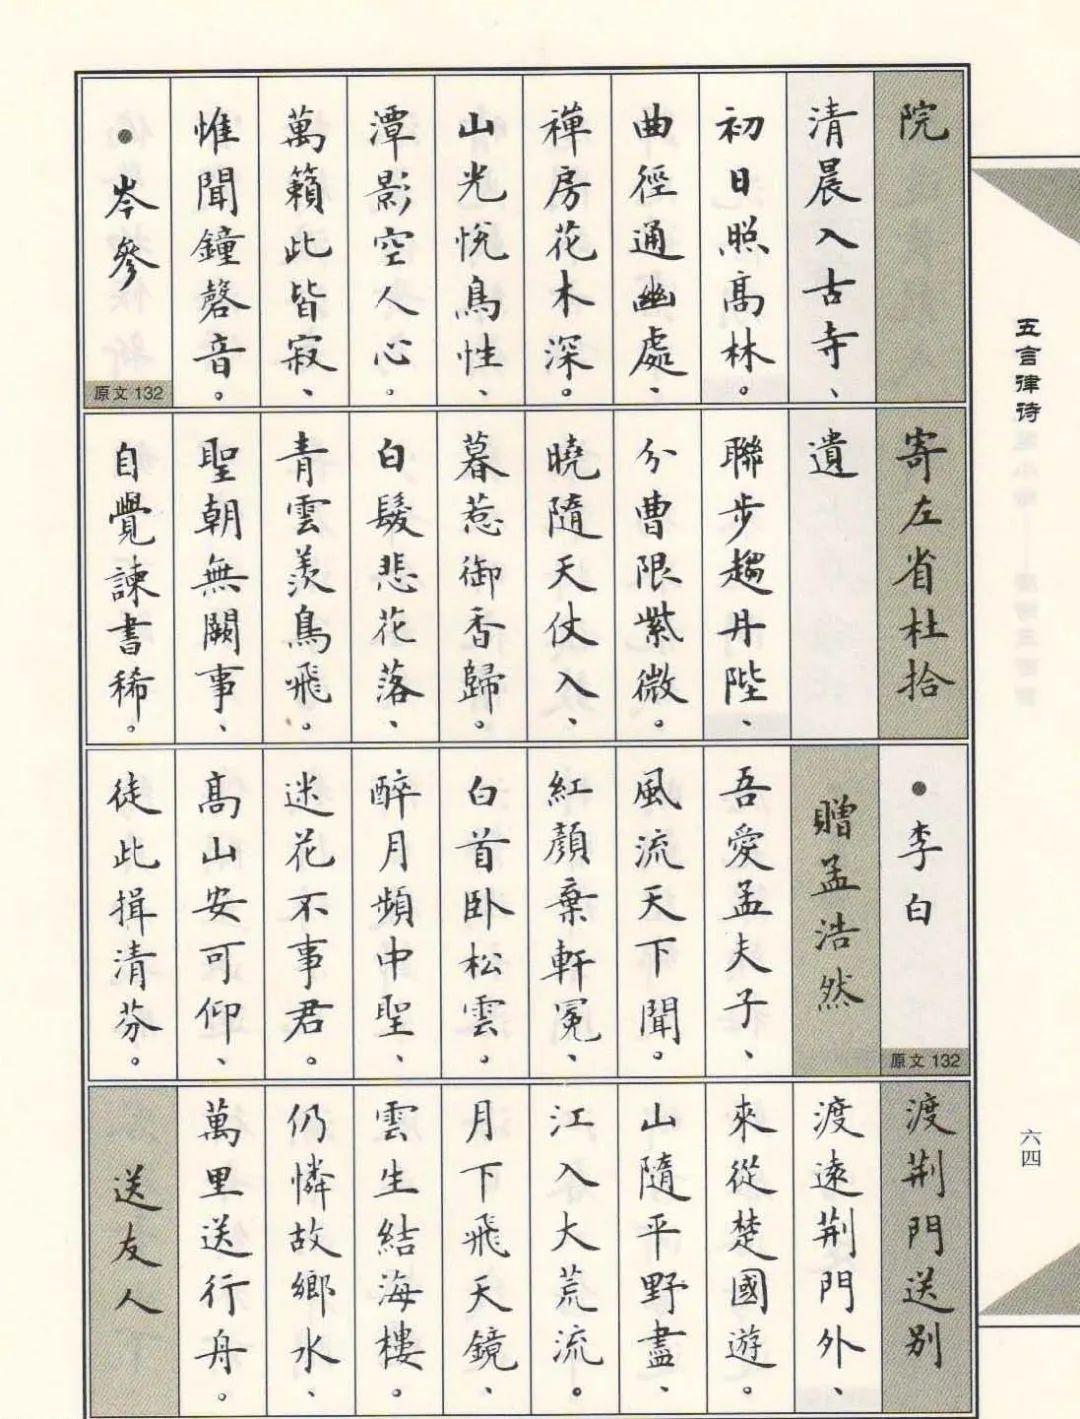 院
清晨入古寺、
初日照高林。
曲徑通幽處、
禪房花木深。
山光悅鳥性、
潭影空人心。
萬籟此皆寂、
惟聞鐘磬音。
•岑參
原文132
寄左省杜拾
遺
聯步趨丹陛、
分曹限紫微。
曉隨天仗入、
暮惹御香歸。
白髮悲花落、
青雲羨鳥飛。
聖朝無闕事、
自覺諫書稀。
•李白
原文132
贈孟浩然
吾愛孟夫子、
風流天下聞。
紅顏棄軒冕、
白首卧松雲。
醉月頻中聖、
迷花不事君。
高山安可仰、
徒此揖清芬。
渡荆門送别
渡遠荆門外、
來從楚國遊。
山隨平野盡、
江入大荒流。
月下飛天鏡、
雲生結海樓。
仍憐故鄉水、
萬里送行舟。
送友人
五言律诗
六四